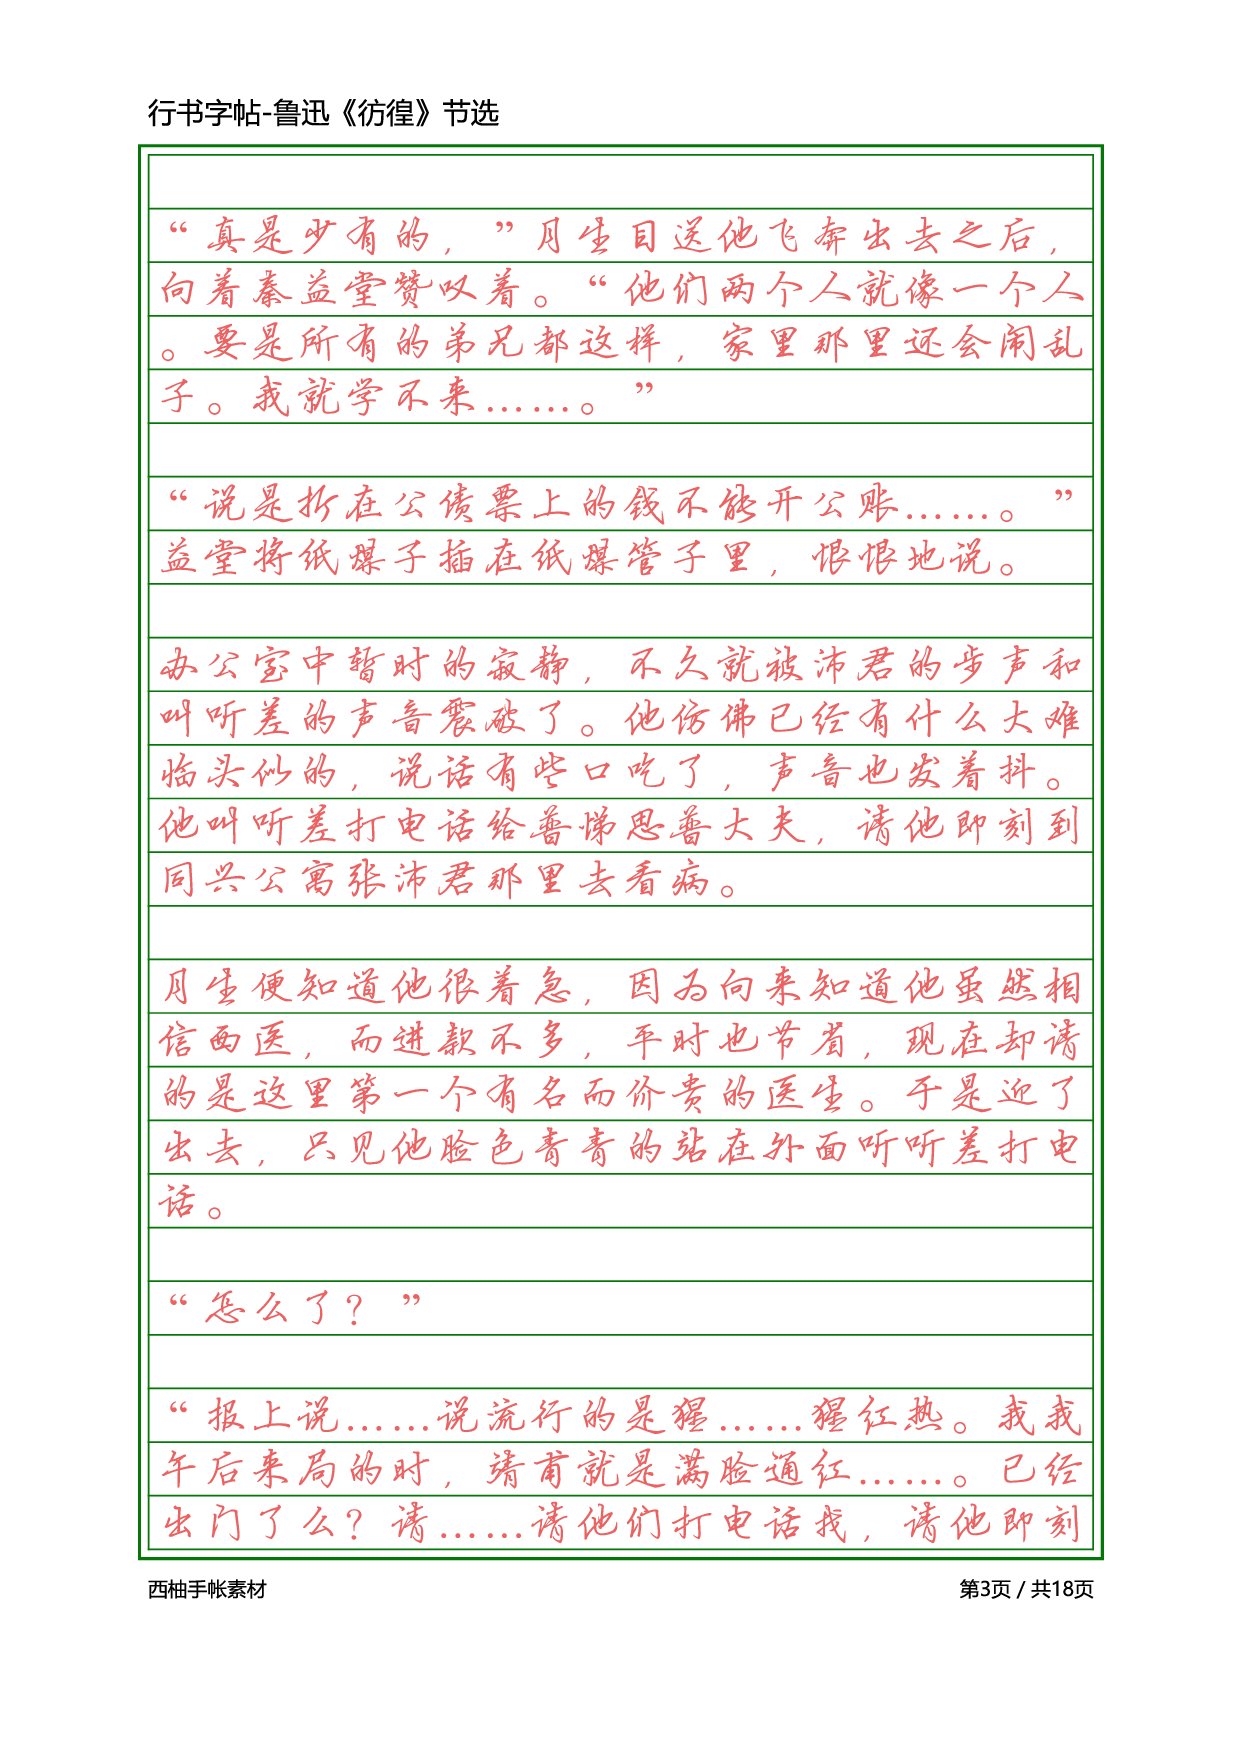 行书字帖-鲁迅《彷徨》节选
“真是少有的，”月生目送他飞奔出去之后，
向着秦益堂赞叹着。“他们两个人就像一个人
。要是所有的弟兄都这样，家里那里还会闹乱
子。我就学不来……。”
“说是折在公债票上的钱不能开公账……。”
益堂将纸煤子插在纸煤管子里，恨恨地说。
办公室中暂时的寂静，不久就被沛君的步声和
叫听差的声音震破了。他仿佛已经有什么大难
临头似的，说话有些口吃了，声音也发着抖。
他叫听差打电话给普悌思普大夫，请他即刻到
同兴公寓张沛君那里去看病。
月生便知道他很着急，因为向来知道他虽然相
信西医，而进款不多，平时也节省，现在却请
的是这里第一个有名而价贵的医生。于是迎了
出去，只见他脸色青青的站在外面听听差打电
话。
“怎么了？”
“报上说……说流行的是猩……猩红热。我我
午后来局的时，靖甫就是满脸通红……。已经
出门了么？请……请他们打电话找，请他即刻
西柚手帐素材
第3页 / 共18页